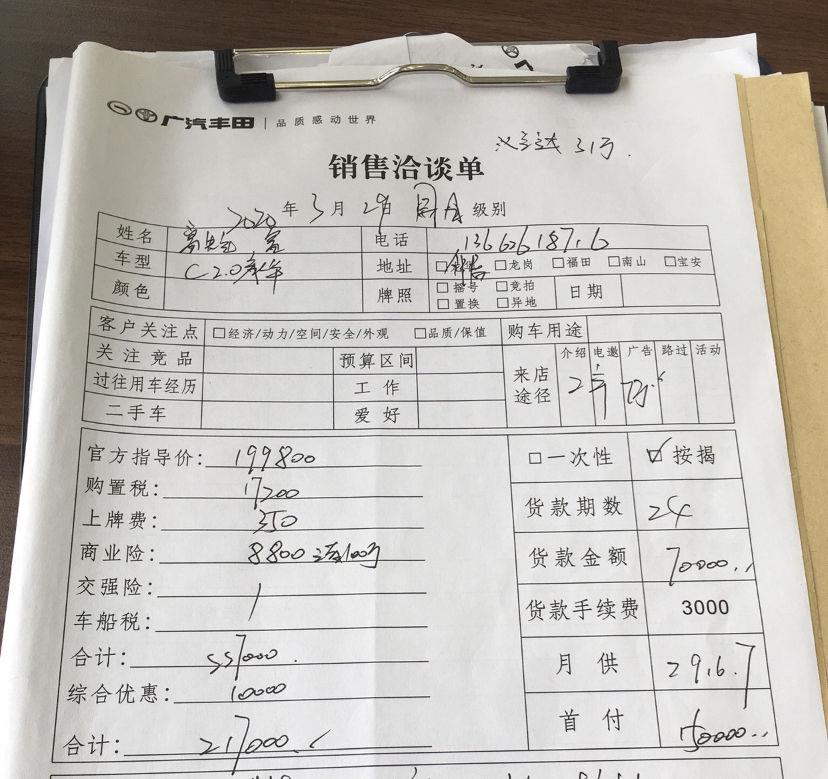 广汽丰田 | 品质感动世界
31万.
销售洽谈单
2020 年 3 月 29日 级别
姓名 电话
车型 C2.0豪华 地址 □ □龙岗 □福田 □南山 □宝安
颜色 牌照 □摇号 □竞拍 □置换 □异地 日期
客户关注点 □经济/动力/空间/安全/外观 □品质/保值 购车用途
关注竞品 预算区间 来店途径 介绍 电邀 广告 路过 活动
过往用车经历 工作
二手车 爱好
官方指导价: 199800 □一次性 ☑按揭
购置税: 17200
上牌费: 350 货款期数 24
商业险: 8800 三者100万
交强险: / 货款金额 70000
车船税: 货款手续费 3000
合计: 月供 2916.7
综合优惠: 10000
合计: 217000 首付 150000